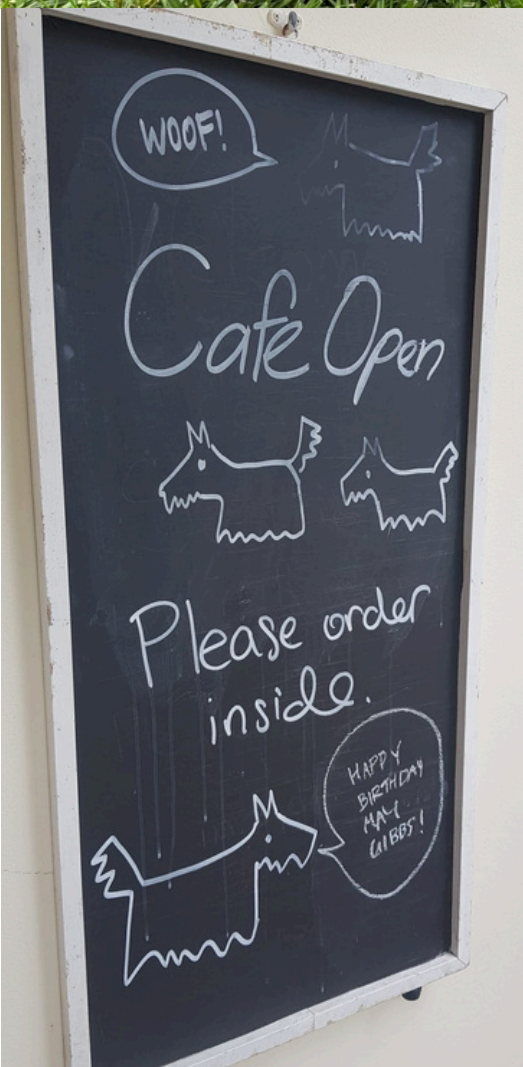 WOOF!
Cafe Open
Please order
inside.
HAPPY
BIRTHDAY
MAY
GIBBS!